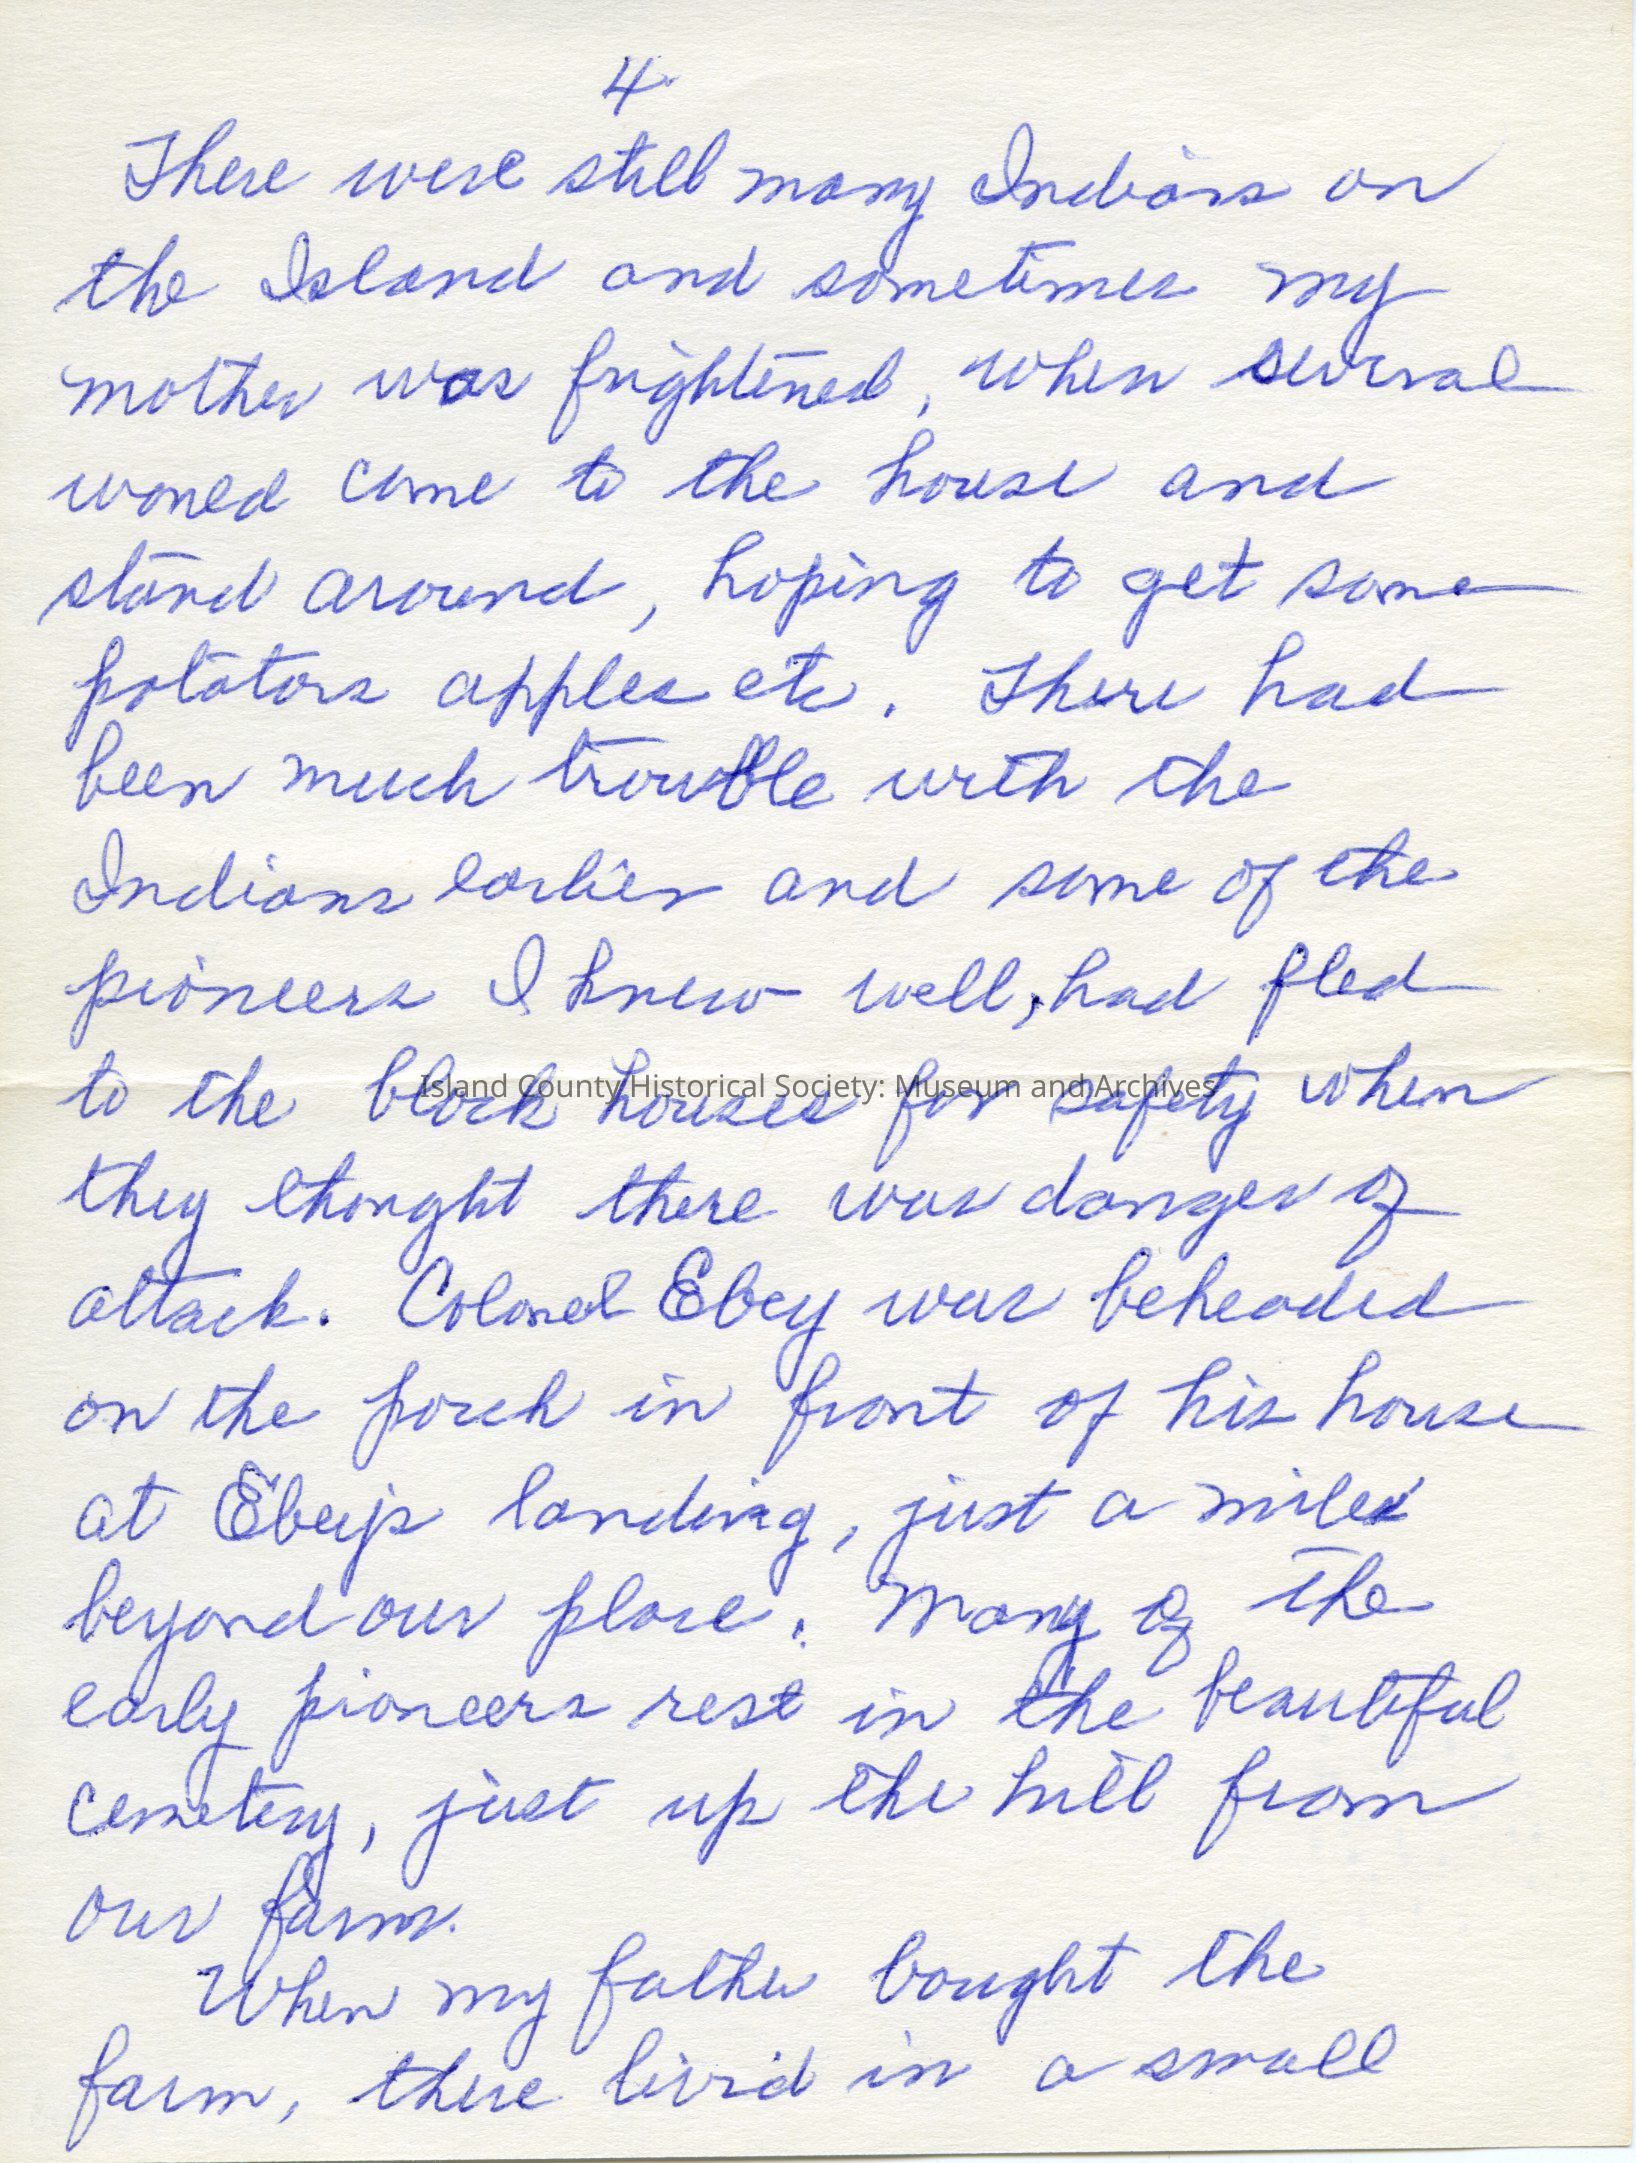 4.
There were still many Indians on
the Island and sometimes my
mother was frightened, when several
would come to the house and
stand around, hoping to get some
potatoes apples etc. There had
been much trouble with the
Indians earlier and some of the
pioneers I knew well, had fled
to the block houses for safety when
Island County Historical Society: Museum and Archives
they thought there was danger of
attack. Colonel Ebey was beheaded
on the porch in front of his house
at Ebeys landing, just a mile
beyond our place. Many of the
early pioneers rest in the beautiful
cemetery, just up the hill from
our farm.
When my father bought the
farm, there lived in a small